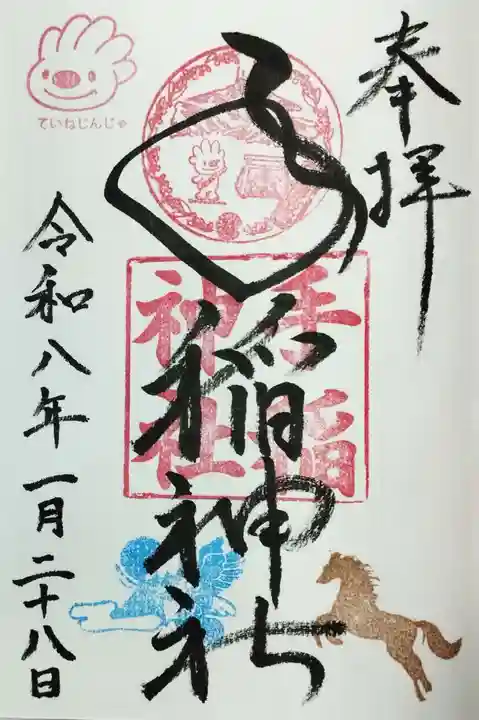 奉拝
手稲神社
手稲
神社
ていねじんじゃ
令和八年一月二十八日